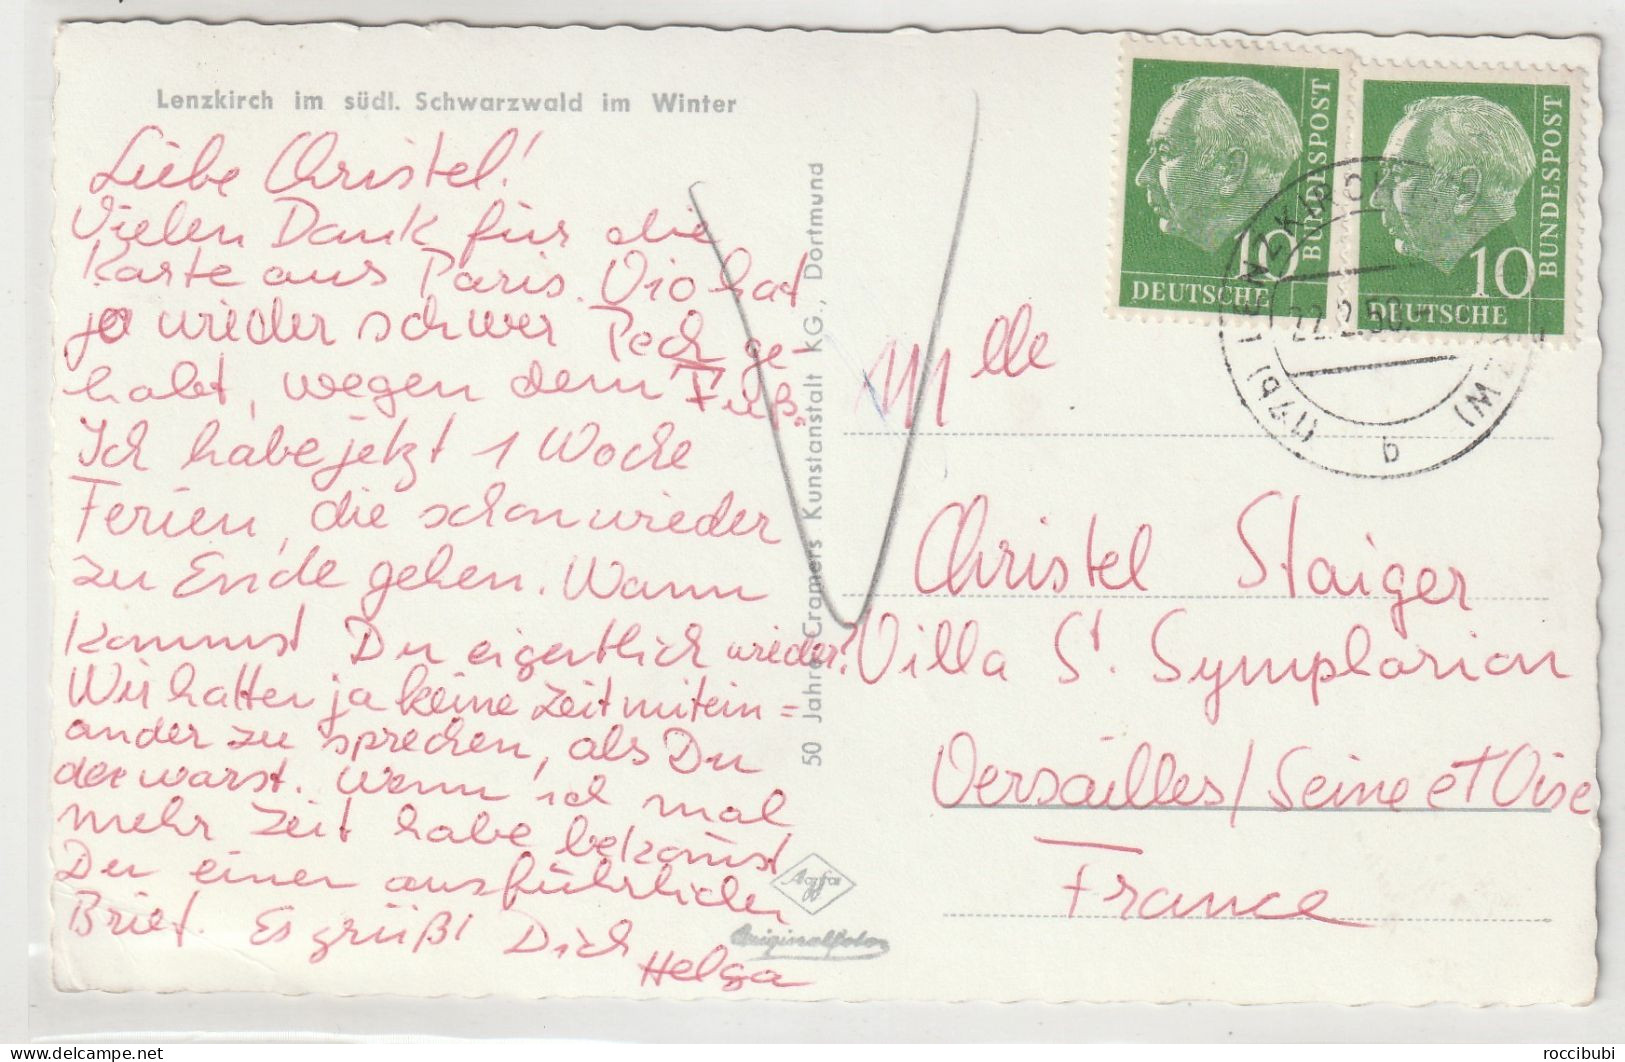 Lenzkirch im südl. Schwarzwald im Winter
Liebe Christel!
Vielen Dank für die
Karte aus Paris. Vio hat
ja wieder schwer Pech ge-
habt, wegen dem Fuß.
Ich habe jetzt 1 Woche
Ferien, die schon wieder
zu Ende gehen. Wann
kommst Du eigentlich wieder?
Wir hatten ja keine Zeit mitein=
ander zu sprechen, als Du
da warst. Wenn ich mal
mehr Zeit habe bekommst
Du einen ausführlichen
Brief. Es grüßt Dich
Helga
50 Jahre Cramers Kunstanstalt KG., Dortmund
Agfa
Originalfoto
DEUTSCHE
BUNDESPOST
10
DEUTSCHE
BUNDESPOST
10
LENZKIRCH
(17b)
b
Mlle
Christel Staiger
Villa St. Symphorion
Versailles/Seine et Oise
France
roccibubi